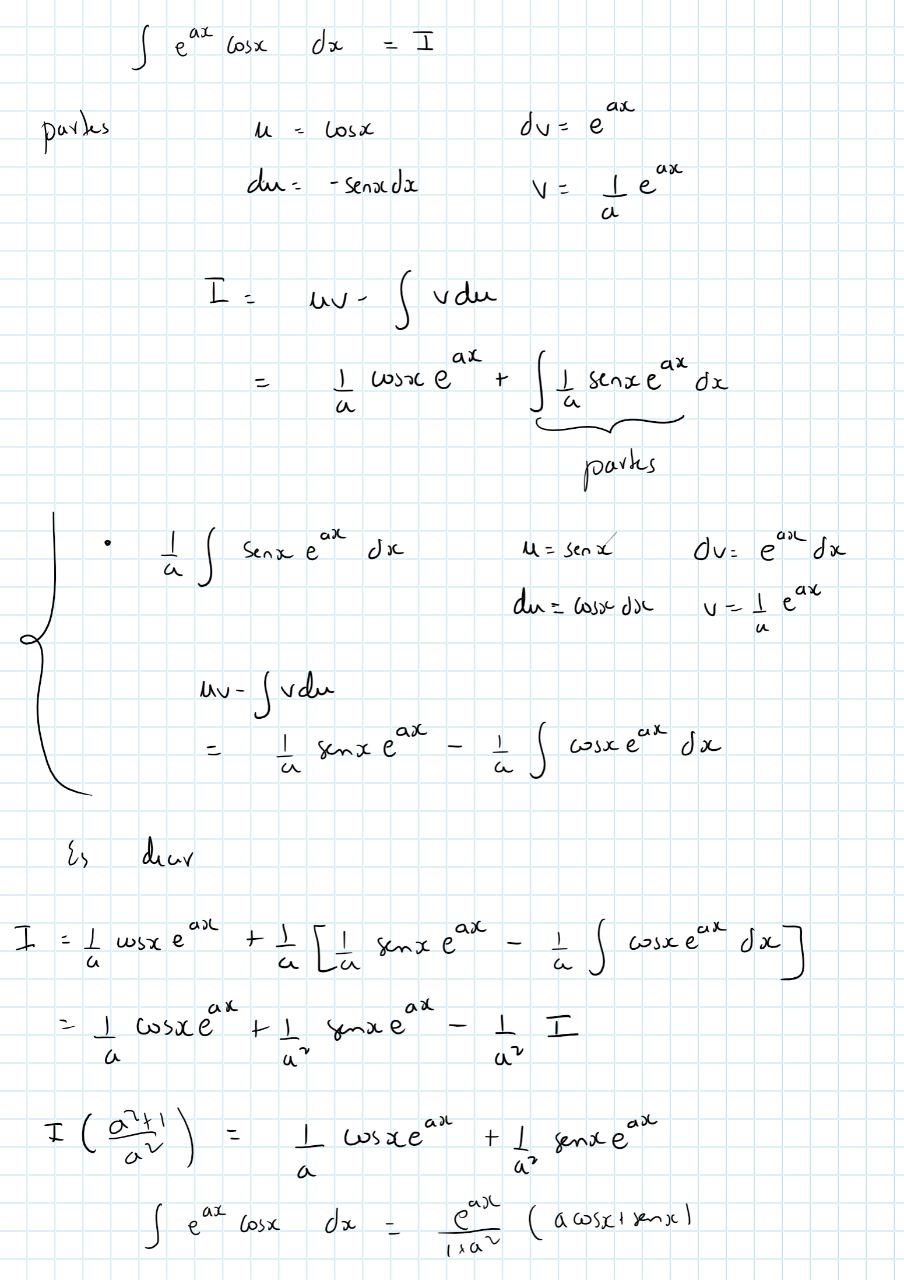 ∫ e^{ax} cosx dx = I
partes u = cosx dv = e^{ax}
du = -senx dx v = 1/a e^{ax}
I = uv - ∫ v du
= 1/a cosx e^{ax} + ∫ 1/a senx e^{ax} dx
partes
• 1/a ∫ senx e^{ax} dx u = senx dv = e^{ax} dx
du = cosx dx v = 1/a e^{ax}
uv - ∫ v du
= 1/a senx e^{ax} - 1/a ∫ cosx e^{ax} dx
Es decir
I = 1/a cosx e^{ax} + 1/a [1/a senx e^{ax} - 1/a ∫ cosx e^{ax} dx]
= 1/a cosx e^{ax} + 1/a² senx e^{ax} - 1/a² I
I ((a²+1)/a²) = 1/a cosx e^{ax} + 1/a² senx e^{ax}
∫ e^{ax} cosx dx = e^{ax}/(1+a²) (a cosx + senx)